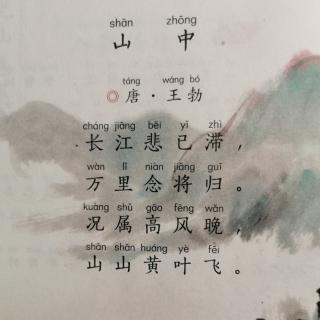 shān zhōng
山 中
táng wáng bó
◎ 唐·王勃
cháng jiāng bēi yǐ zhì
长江悲已滞，
wàn lǐ niàn jiāng guī
万里念将归。
kuàng shǔ gāo fēng wǎn
况属高风晚，
shān shān huáng yè fēi
山山黄叶飞。